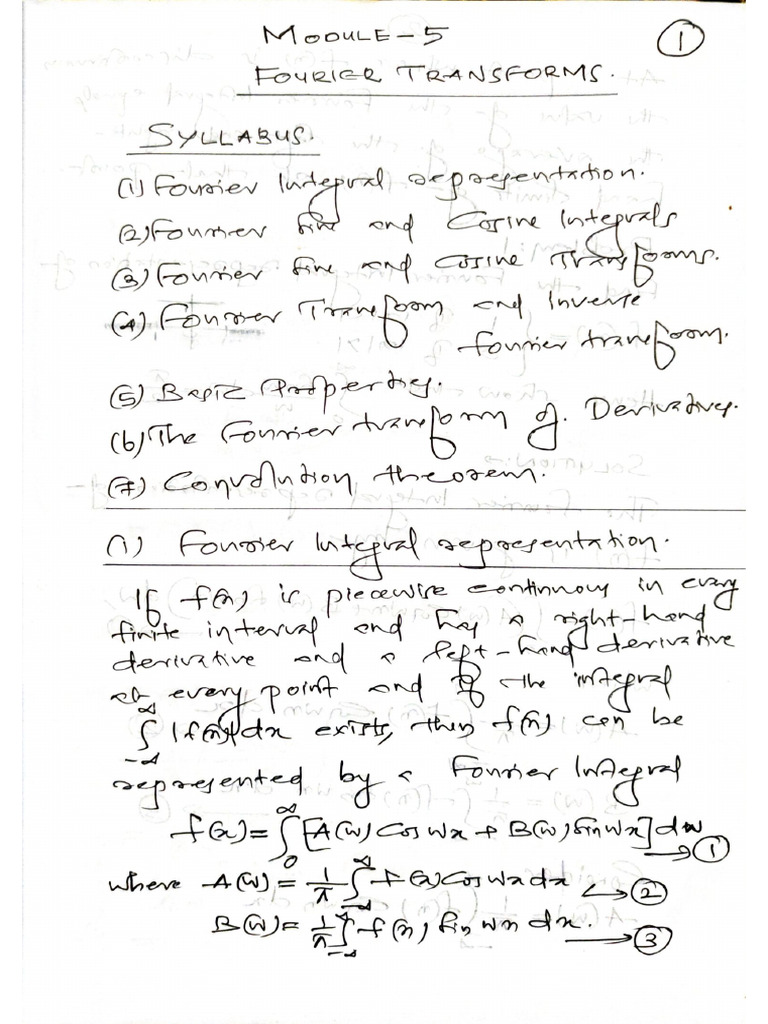 MODULE-5
①
FOURIER TRANSFORMS.
SYLLABUS.
(1) Fourier Integral representation.
(2) Fourier Sine and Cosine Integrals
(3) Fourier Sine and Cosine Transforms.
(4) Fourier Transform and Inverse
Fourier transform.
(5) Basic Properties.
(6) The Fourier transform of Derivatives.
(7) Convolution theorem.
(1) Fourier Integral representation.
If f(x) is piecewise continuous in every
finite interval and has a right-hand
derivative and a left-hand derivative
at every point and if the integral
∫_{-∞}^{∞} |f(x)|dx exists, then f(x) can be
represented by a Fourier Integral
f(x) = ∫_0^∞ [A(w) Cos wx + B(w) Sin wx] dw → ①
where A(w) = 1/π ∫_{-∞}^{∞} f(x) Cos wx dx ↔ ②
B(w) = 1/π ∫_{-∞}^{∞} f(x) Sin wx dx. → ③